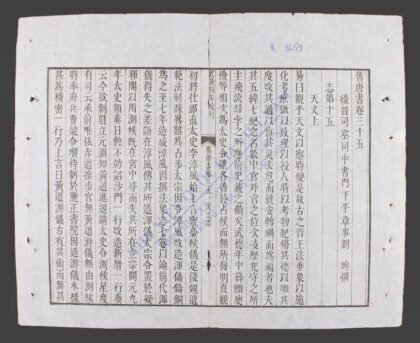 R 3659
舊唐書卷三十五
後晉司空同中書門下平章事劉 昫撰
志第十五
天文上
易曰觀乎天文以察時變是故古之哲王法垂象以施
化考庶徵以致理以授人時以考物紀脩其德以順其
度改過以慎其災去危而就安轉禍而爲福者也夫
其五緯七紀之名數中官外官之位次凌歷犯守之所
主飛流彗孛之所應前史載之備矣武德年中薛頤庾
儉等相次爲太史令雖各善於占候而無所發明貞觀
初將仕郎直太史李淳風始上言靈臺候儀是後魏遺
範法制疎畧難爲占步太宗因令淳風改造渾儀鑄銅
爲之至七年造成淳風因撰法象志七卷以論前代渾
儀得失之差語在淳風傳其所造渾儀太宗令置於凝
暉閣以用測候既在宮中尋而失其所在玄宗開元九
年太史頻奏日蝕不效詔沙門一行改造新曆一行奏
云今欲創曆立元須知黃道進退請太史令測候星度
有司云承前唯依赤道推步官無黃道游儀無由測候
時率府兵曹梁令瓚待制於麗正書院因造游儀木樣
甚爲精密一行乃上言曰黃道游儀古有其術而無其